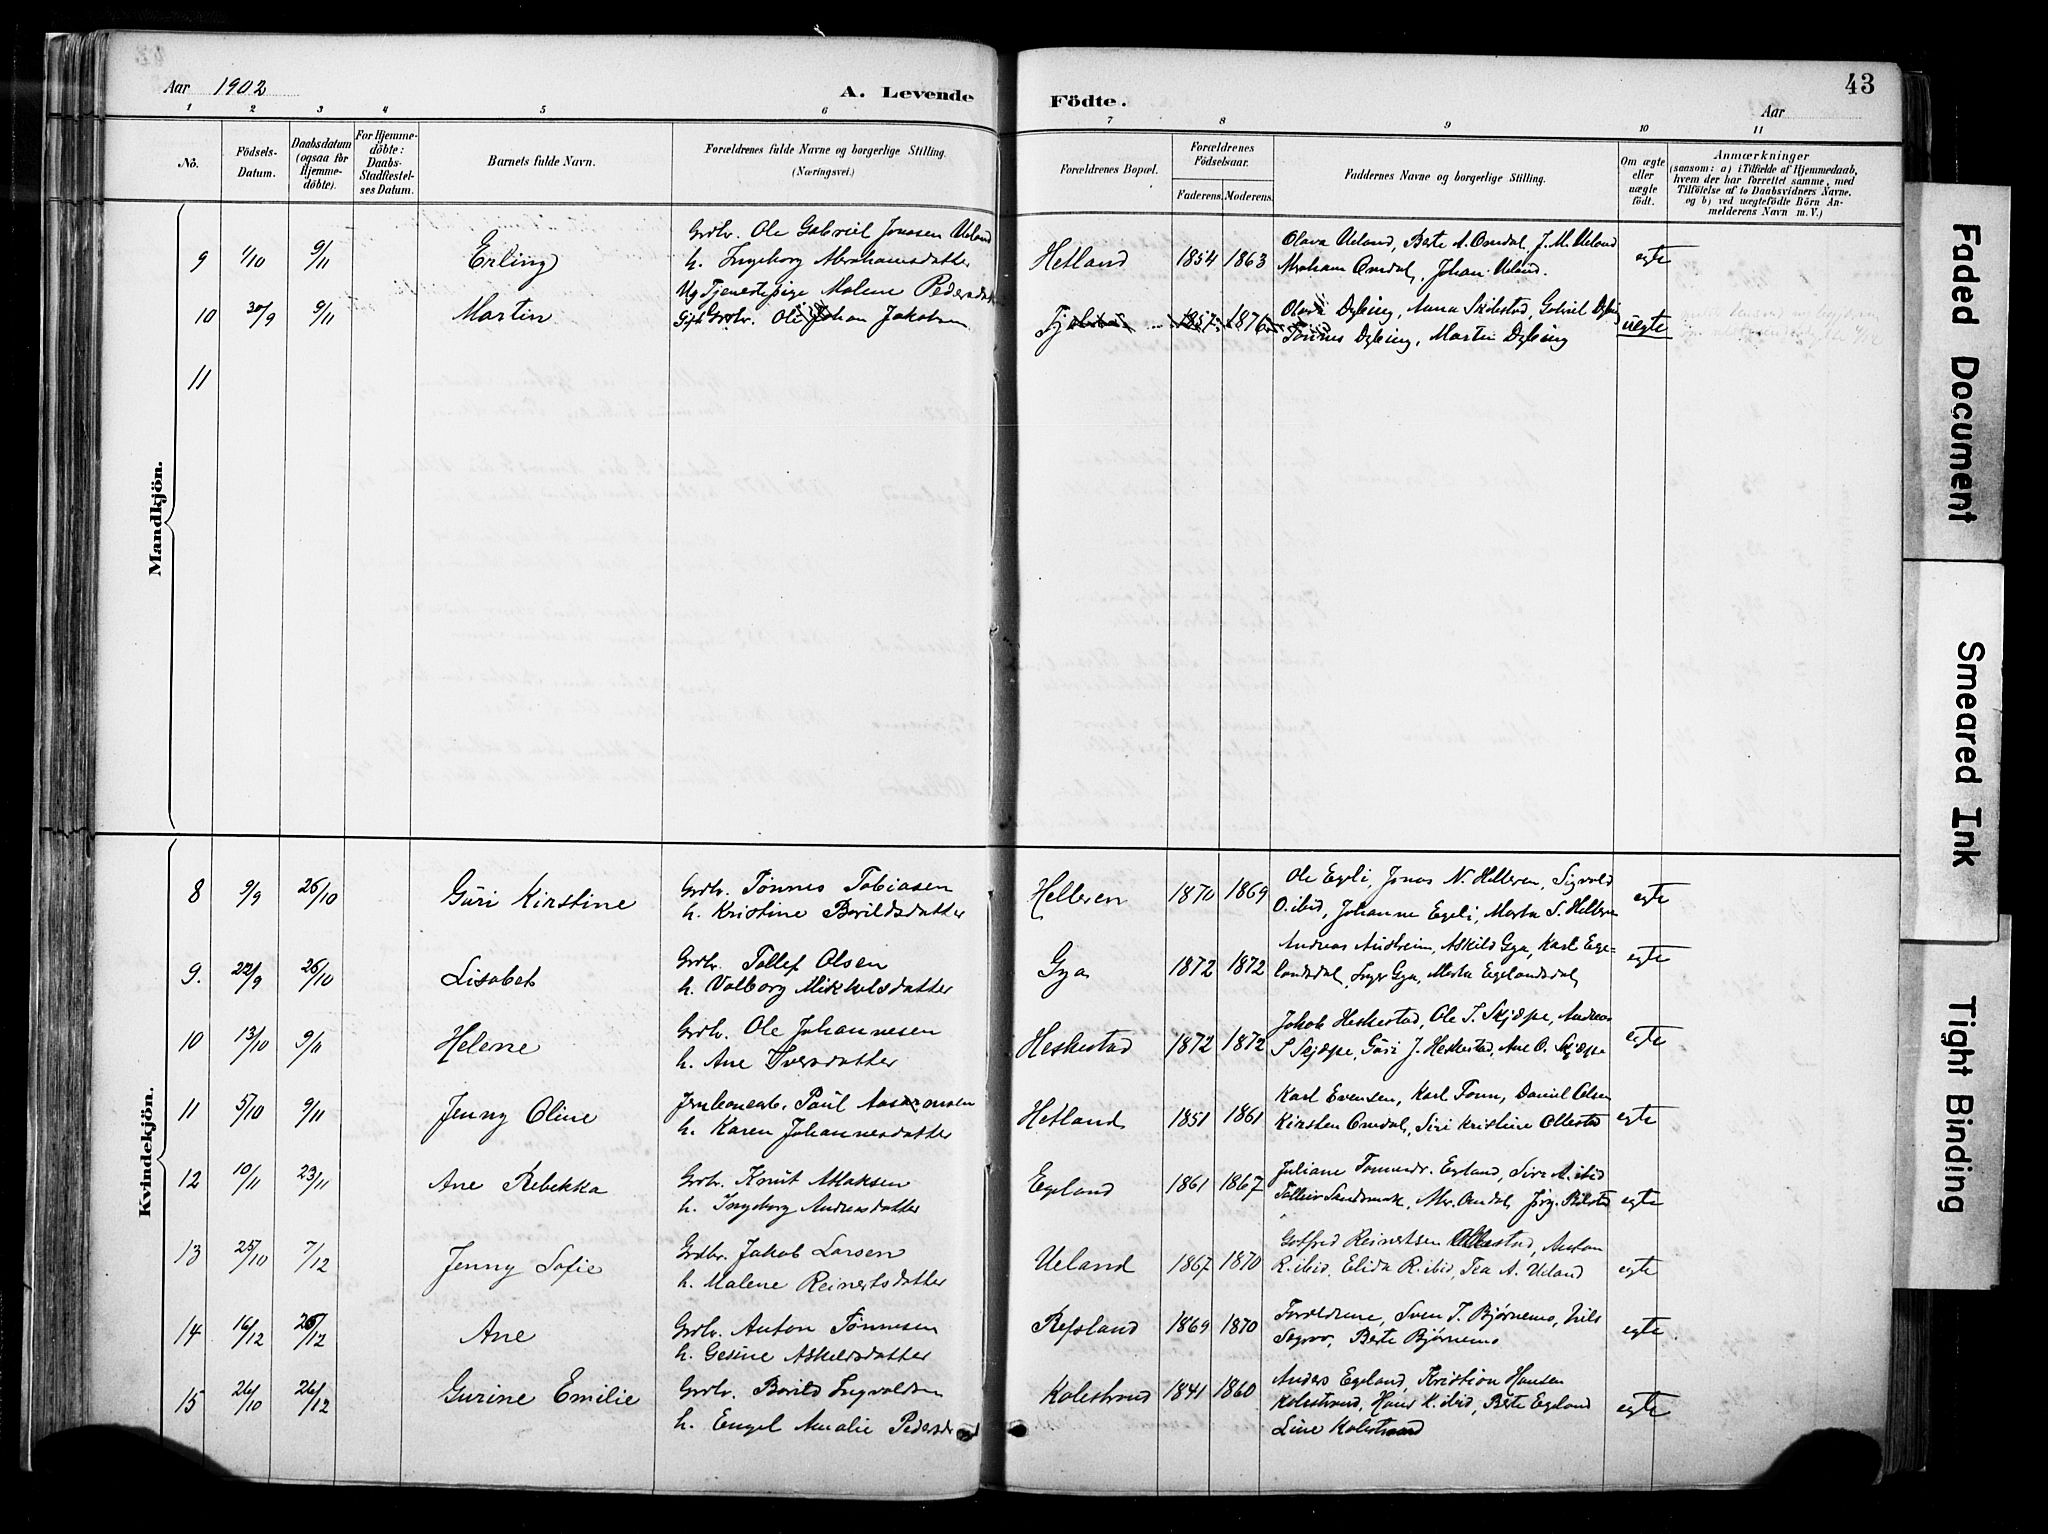 Aar 1902
A. Levende
Födte.
Aar
43
1 2 3 4 5 6 7 8 9 10 11
No.
Födsels-
Datum.
Daabsdatum
(ogsaa for
Hjemme-
döbte).
For Hjemme-
döbte:
Daabs-
Stadfæstel-
ses Datum.
Barnets fulde Navn.
Forældrenes fulde Navne og borgerlige Stilling.
(Næringsvei.)
Forældrenes Bopæl.
Forældrenes
Födselsaar.
Faderens. Moderens.
Faddernes Navne og borgerlige Stilling.
Om ægte
eller
uægte
födt.
Anmærkninger
(saasom: a) i Tilfælde af Hjemmedaab,
hvem der har forrettet samme, med
Tilföielse af to Daabsvidners Navne.
og b) ved uægtefödte Börn An-
melderens Navn m. V.)
Mandkjön.
Grdbr. Ole Gabriel Jonasen Ueland
9 1/10 9/11 Erling h. Ingeborg Abrahamsdatter Hetland 1854 1863 Olava Ueland, Berte A. Omdal, J. M. Ueland
Abraham Omdal, Johan Ueland. egte
Ug Tjenestepige Malene Pedersdatter
10 30/9 9/11 Martin Gift Grdbr. Ole Johan Jakobsen 1857 1876 Olava Dybing, Anna Skibestad, Gabriel Dybing
Tønnes Dybing, Martin Dybing uegte
11
Kvindekjön.
8 9/9 26/10 Guri Kirstine Grdbr. Tønnes Tobiasen
h. Kristine Borildsdatter Helleren 1870 1869 Ole Egeli, Jonas N. Helleren, Sigvald
O. ibid, Johanne Egeli, Marta S. Helleren egte
9. 22/9 26/10 Lisabet Grdbr. Tollef Olsen
h. Valborg Mikkelsdatter Gya 1872 1872 Andreas Austreim, Askild Gya, Karl Ege-
landsdal, Inger Gya, Marta Egelandsdal egte
10 13/10 9/11 Helene Grdbr. Ole Johannesen
h. Ane Iversdatter Heskestad 1872 1872 Jakob Heskestad, Ole T. Skjæpe, Andreas
S Skjæpe, Guri J. Heskestad, Ane O. Skjæpe egte
11 5/10 9/11 Jenny Oline Jernbanearb. Paul Aasmonsen
h. Karen Johannesdatter Hetland 1851 1861 Karl Evensen, Karl Tonn, Daniel Olsen
Kirsten Omdal, Siri Kristine Ollestad egte
12 10/11 23/11 Ane Rebekka Grdbr. Knut Aslaksen
h. Ingeborg Andreasdatter Egeland 1861 1867 Juliane Tønnesdr. Egeland, Siri A. ibid
Tolleiv Sandsmark, Abr. Omdal, egte
13 25/10 7/12 Jenny Sofie Grdbr. Jakob Larsen
h. Malene Reinertsdatter Ueland 1867 1870 Gotfred Reinertsen Ollestad, Anton
R. ibid. Elida R. ibid, Tea A. Ueland egte
14 16/12 26/12 Ane Grdbr. Anton Tønnesen
h. Gesine Askildsdatter Refsland 1869 1870 Forældrene, Sven T. Bjørnemo, Nils
Berte Bjørnemo egte.
15 26/10 26/12 Gurine Emilie Grdbr. Borild Ingvaldsen
h. Engel Amalie Pedersd Kolestrand 1841 1860 Anders Egeland, Kristian Hansen
Kolestrand, Hans K. ibid, Berte Egeland
Line Kolestrand egte
Faded Document
Smeared Ink
Tight Binding